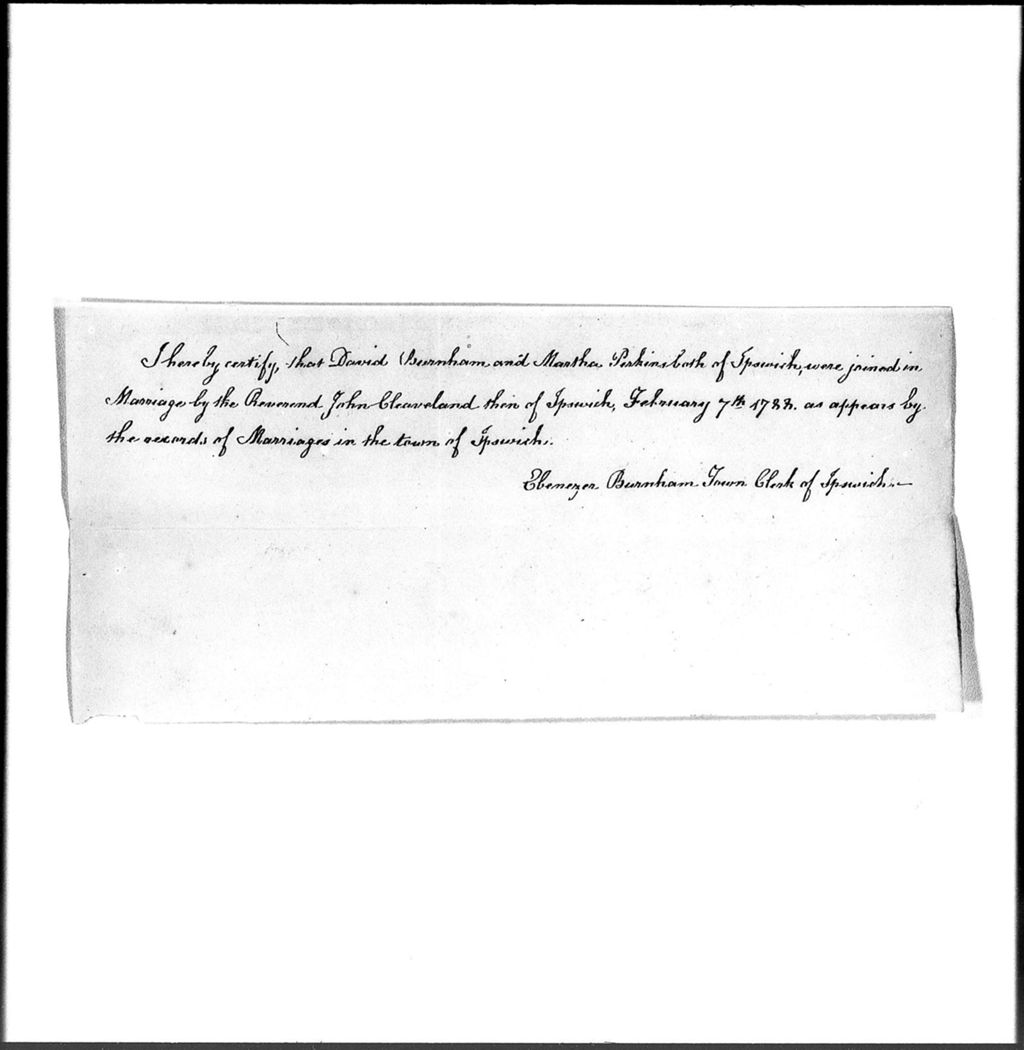 I hereby certify, that David Burnham and Martha Perkins both of Ipswich, were joined in
Marriage by the Reverend John Cleaveland then of Ipswich, February 7th 1788. as appears by
the records of Marriages in the town of Ipswich.
Ebenezer Burnham Town Clerk of Ipswich.—